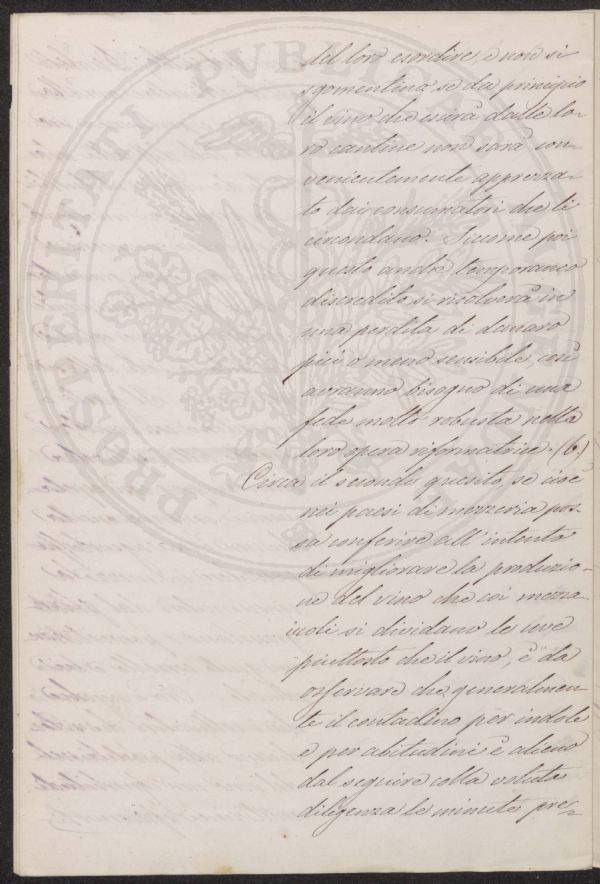 del loro esordire, e non si
sgomentino se da principio
il vino che uscirà dalle lo-
ro cantine non sarà con-
venientemente apprezza-
to dai consumatori che li
circondano. Siccome poi
questo anche temporaneo
discredito si risolverà in
una perdita di danaro
più o meno sensibile, così
avranno bisogno di una
fede molto robusta nella
loro opera riformatrice. (6.)
Circa il secondo quesito, se cioè
nei paesi di mezzeria pos-
sa conferire all'intento
di migliorare la produzio-
ne del vino che coi mezza-
iuoli si dividano le uve
piuttosto che il vino, è da
osservare che generalmen-
te il contadino per indole
e per abitudini è alieno
dal seguire colla voluta
diligenza le minute pre-
PROSPERITATI PVBLICAE